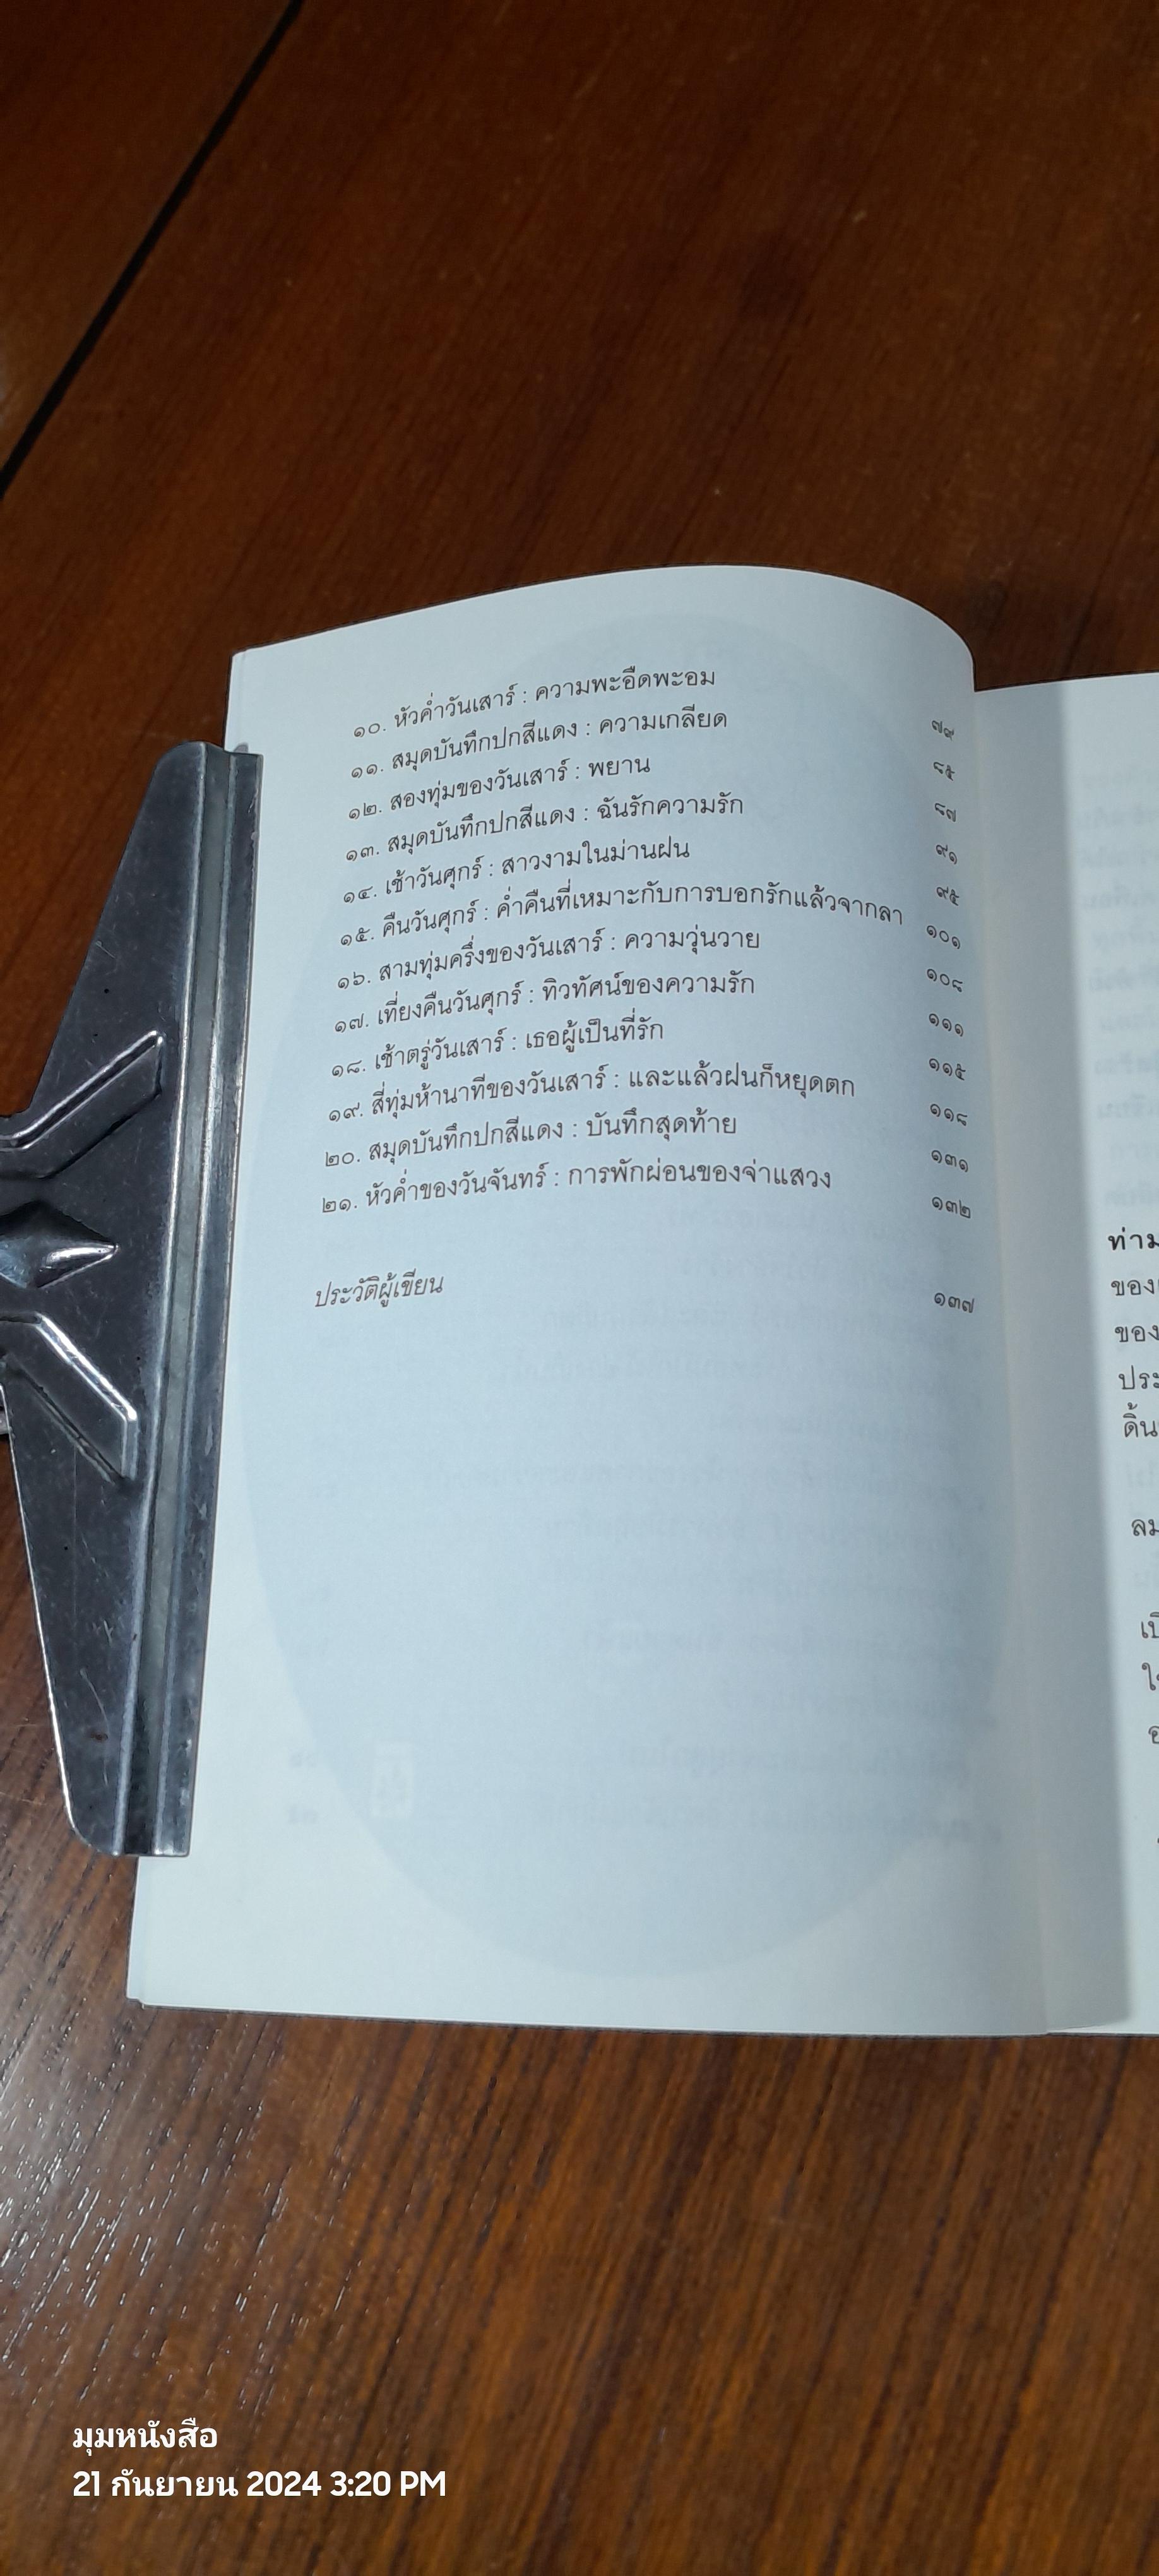 ๑๐. หัวค่ำวันเสาร์ : ความพะอืดพะอม ๗๙
๑๑. สมุดบันทึกปกสีแดง : ความเกลียด ๘๕
๑๒. สองทุ่มของวันเสาร์ : พยาน ๘๗
๑๓. สมุดบันทึกปกสีแดง : ฉันรักความรัก ๙๑
๑๔. เช้าวันศุกร์ : สาวงามในม่านฝน ๙๕
๑๕. คืนวันศุกร์ : ค่ำคืนที่เหมาะกับการบอกรักแล้วจากลา ๑๐๑
๑๖. สามทุ่มครึ่งของวันเสาร์ : ความวุ่นวาย ๑๐๘
๑๗. เที่ยงคืนวันศุกร์ : ทิวทัศน์ของความรัก ๑๑๑
๑๘. เช้าตรู่วันเสาร์ : เธอผู้เป็นที่รัก ๑๑๕
๑๙. สี่ทุ่มห้านาทีของวันเสาร์ : และแล้วฝนก็หยุดตก ๑๑๘
๒๐. สมุดบันทึกปกสีแดง : บันทึกสุดท้าย ๑๓๑
๒๑. หัวค่ำของวันจันทร์ : การพักผ่อนของจ่าแสวง ๑๓๒
ประวัติผู้เขียน ๑๓๗
ของ
ประ
ดิ้น
ลม
มุมหนังสือ
21 กันยายน 2024 3:20 PM